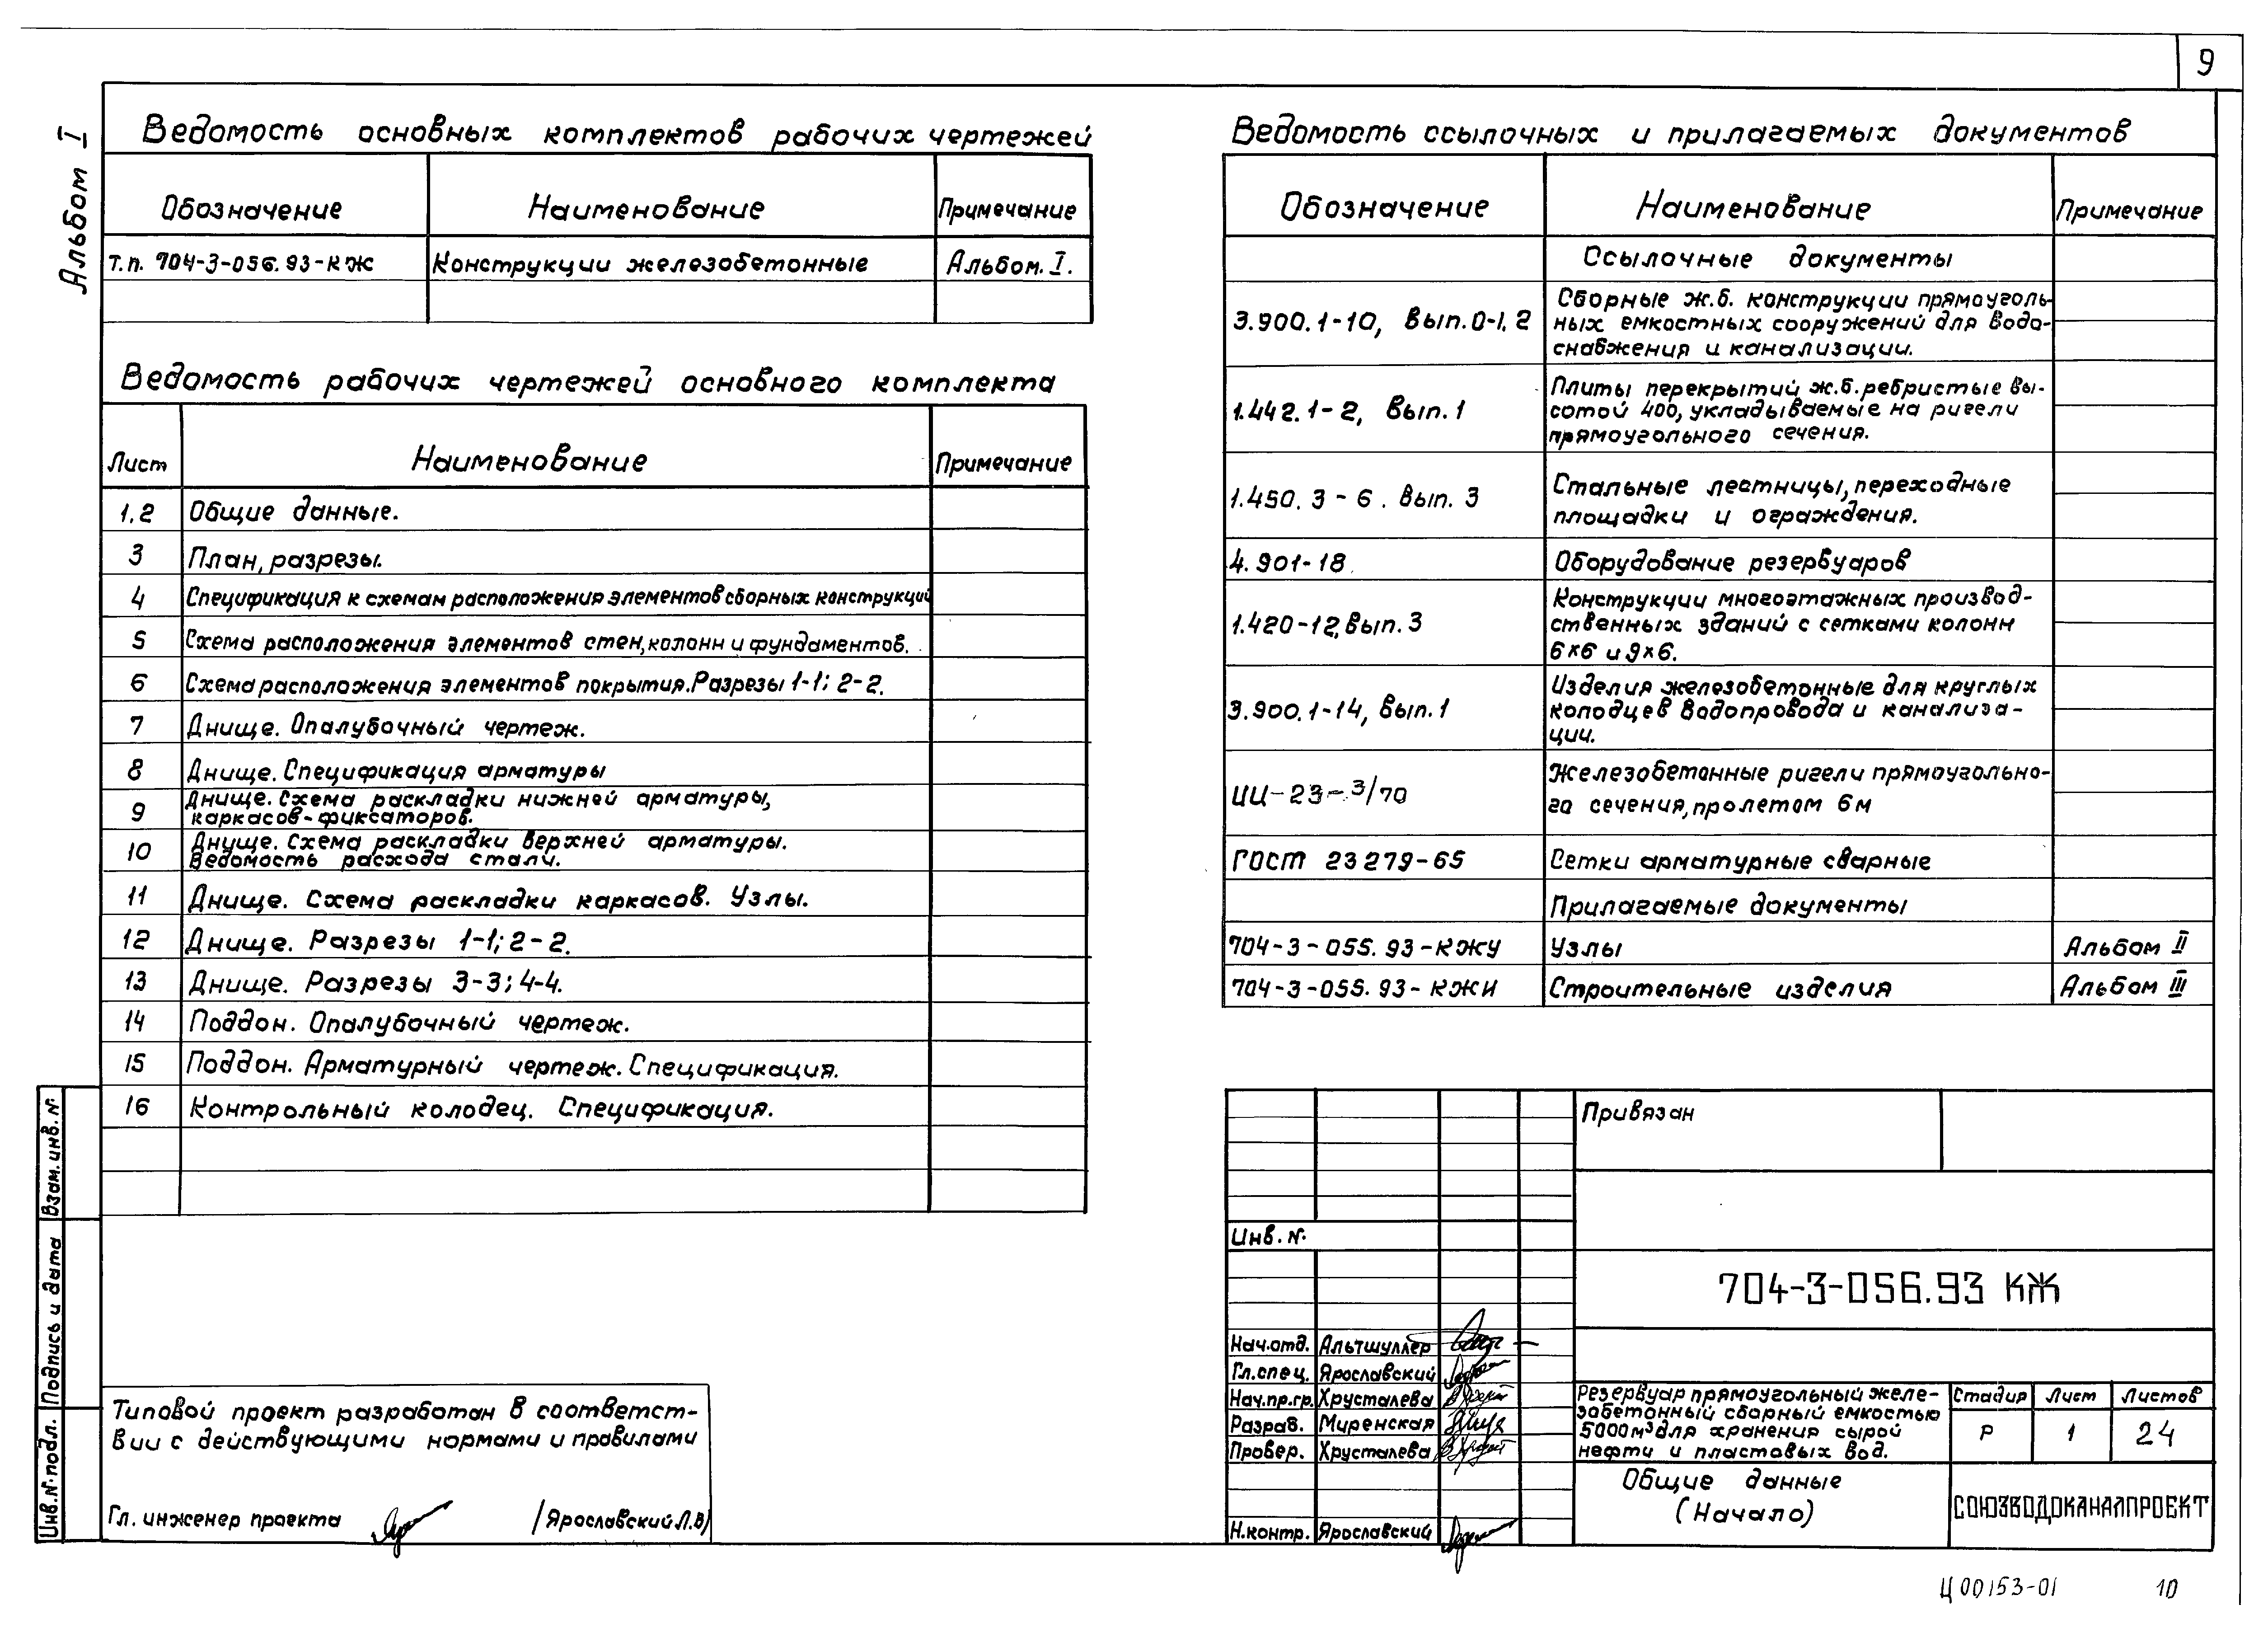 9
Альбом I
Ведомость основных комплектов рабочих чертежей
Обозначение Наименование Примечание
т.п. 704-3-056.93-КЖ Конструкции железобетонные Альбом. I.
Ведомость рабочих чертежей основного комплекта
Лист Наименование Примечание
1.2 Общие данные.
3 План, разрезы.
4 Спецификация к схемам расположения элементов сборных конструкций
5 Схема расположения элементов стен, колонн и фундаментов.
6 Схема расположения элементов покрытия. Разрезы 1-1; 2-2.
7 Днище. Опалубочный чертеж.
8 Днище. Спецификация арматуры
9 Днище. Схема раскладки нижней арматуры,
каркасов-фиксаторов.
10 Днище. Схема раскладки верхней арматуры.
Ведомость расхода стали.
11 Днище. Схема раскладки каркасов. Узлы.
12 Днище. Разрезы 1-1; 2-2.
13 Днище. Разрезы 3-3; 4-4.
14 Поддон. Опалубочный чертеж.
15 Поддон. Арматурный чертеж. Спецификация.
16 Контрольный колодец. Спецификация.
Типовой проект разработан в соответст-
вии с действующими нормами и правилами
Гл. инженер проекта /Ярославский Л.В/
Взам. инв. №
Подпись и дата
Инв. № подл.
Ведомость ссылочных и прилагаемых документов
Обозначение Наименование Примечание
Ссылочные документы
3.900.1-10, Вып. 0-1, 2 Сборные ж.б. конструкции прямоуголь-
ных емкостных сооружений для водо-
снабжения и канализации.
1.442.1-2, Вып. 1 Плиты перекрытий ж.б. ребристые вы-
сотой 400, укладываемые на ригели
прямоугольного сечения.
1.450.3-6. Вып. 3 Стальные лестницы, переходные
площадки и ограждения.
4.901-18. Оборудование резервуаров
1.420-12, вып. 3 Конструкции многоэтажных производ-
ственных зданий с сетками колонн
6×6 и 9×6.
3.900.1-14, Вып. 1 Изделия железобетонные для круглых
колодцев водопровода и канализа-
ции.
ИИ-23-3/70 Железобетонные ригели прямоугольно-
го сечения, пролетом 6м
ГОСТ 23279-65 Сетки арматурные сварные
Прилагаемые документы
704-3-055.93-КЖУ Узлы Альбом II
704-3-055.93-КЖИ Строительные изделия Альбом III
Привязан
Инв. №
704-3-056.93 КЖ
Нач. отд. Альтшуллер
Гл. спец. Ярославский
Нач. пр. гр. Хрусталева
Разраб. Миренская
Провер. Хрусталева
Н. контр. Ярославский
Резервуар прямоугольный желе-
зобетонный сборный емкостью
5000м³ для хранения сырой
нефти и пластовых вод.
Стадия Лист Листов
Р 1 24
Общие данные
(Начало)
СОЮЗВОДОКАНАЛПРОЕКТ
Ц00153-01 10